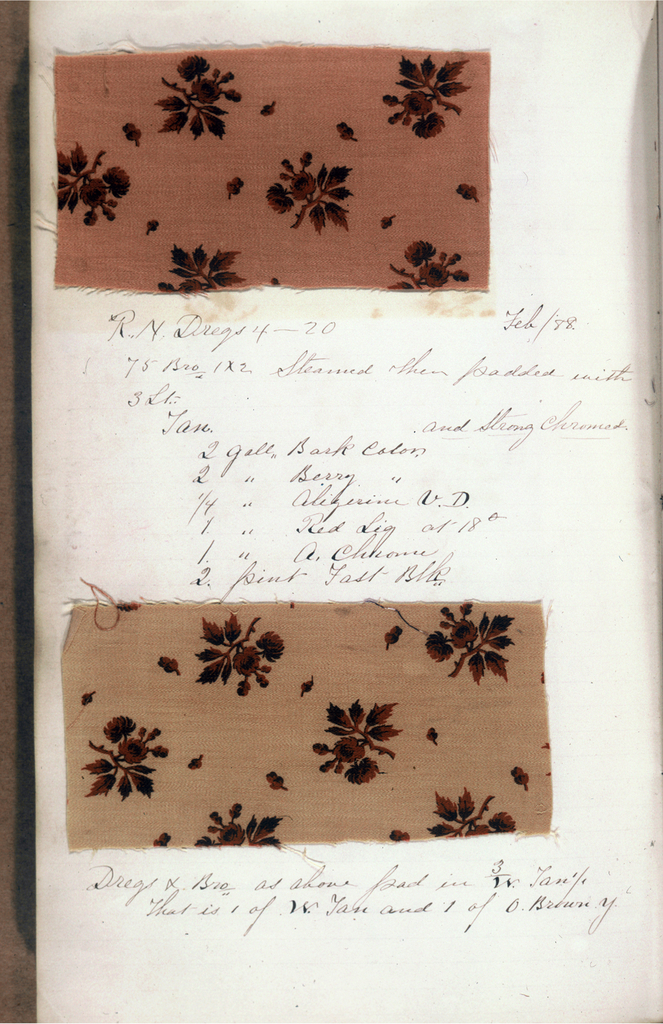 R. N. Dregs 4 — 20 Feb/88.
75 Bro 1x2 Steamed then padded with
3 Lt.
Tan. and Strong Chromed.
2 gall,, Bark Color
2 " Berry "
1/4 " Alizerine V. D.
1. " Red Liq at 18°
1. " A. Chrome
2. pint Fast Blk.
Dregs & Bro as above pad in 3/W. Tan
That is 1 of W. Tan and 1 of O. Brown y.